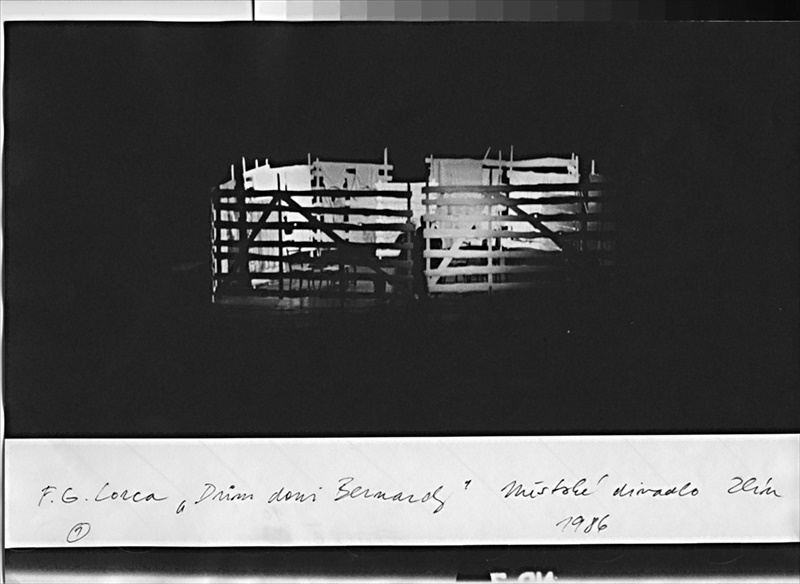 F. G. Lorca „Dům doni Bernardy" Městské divadlo Zlín
1986